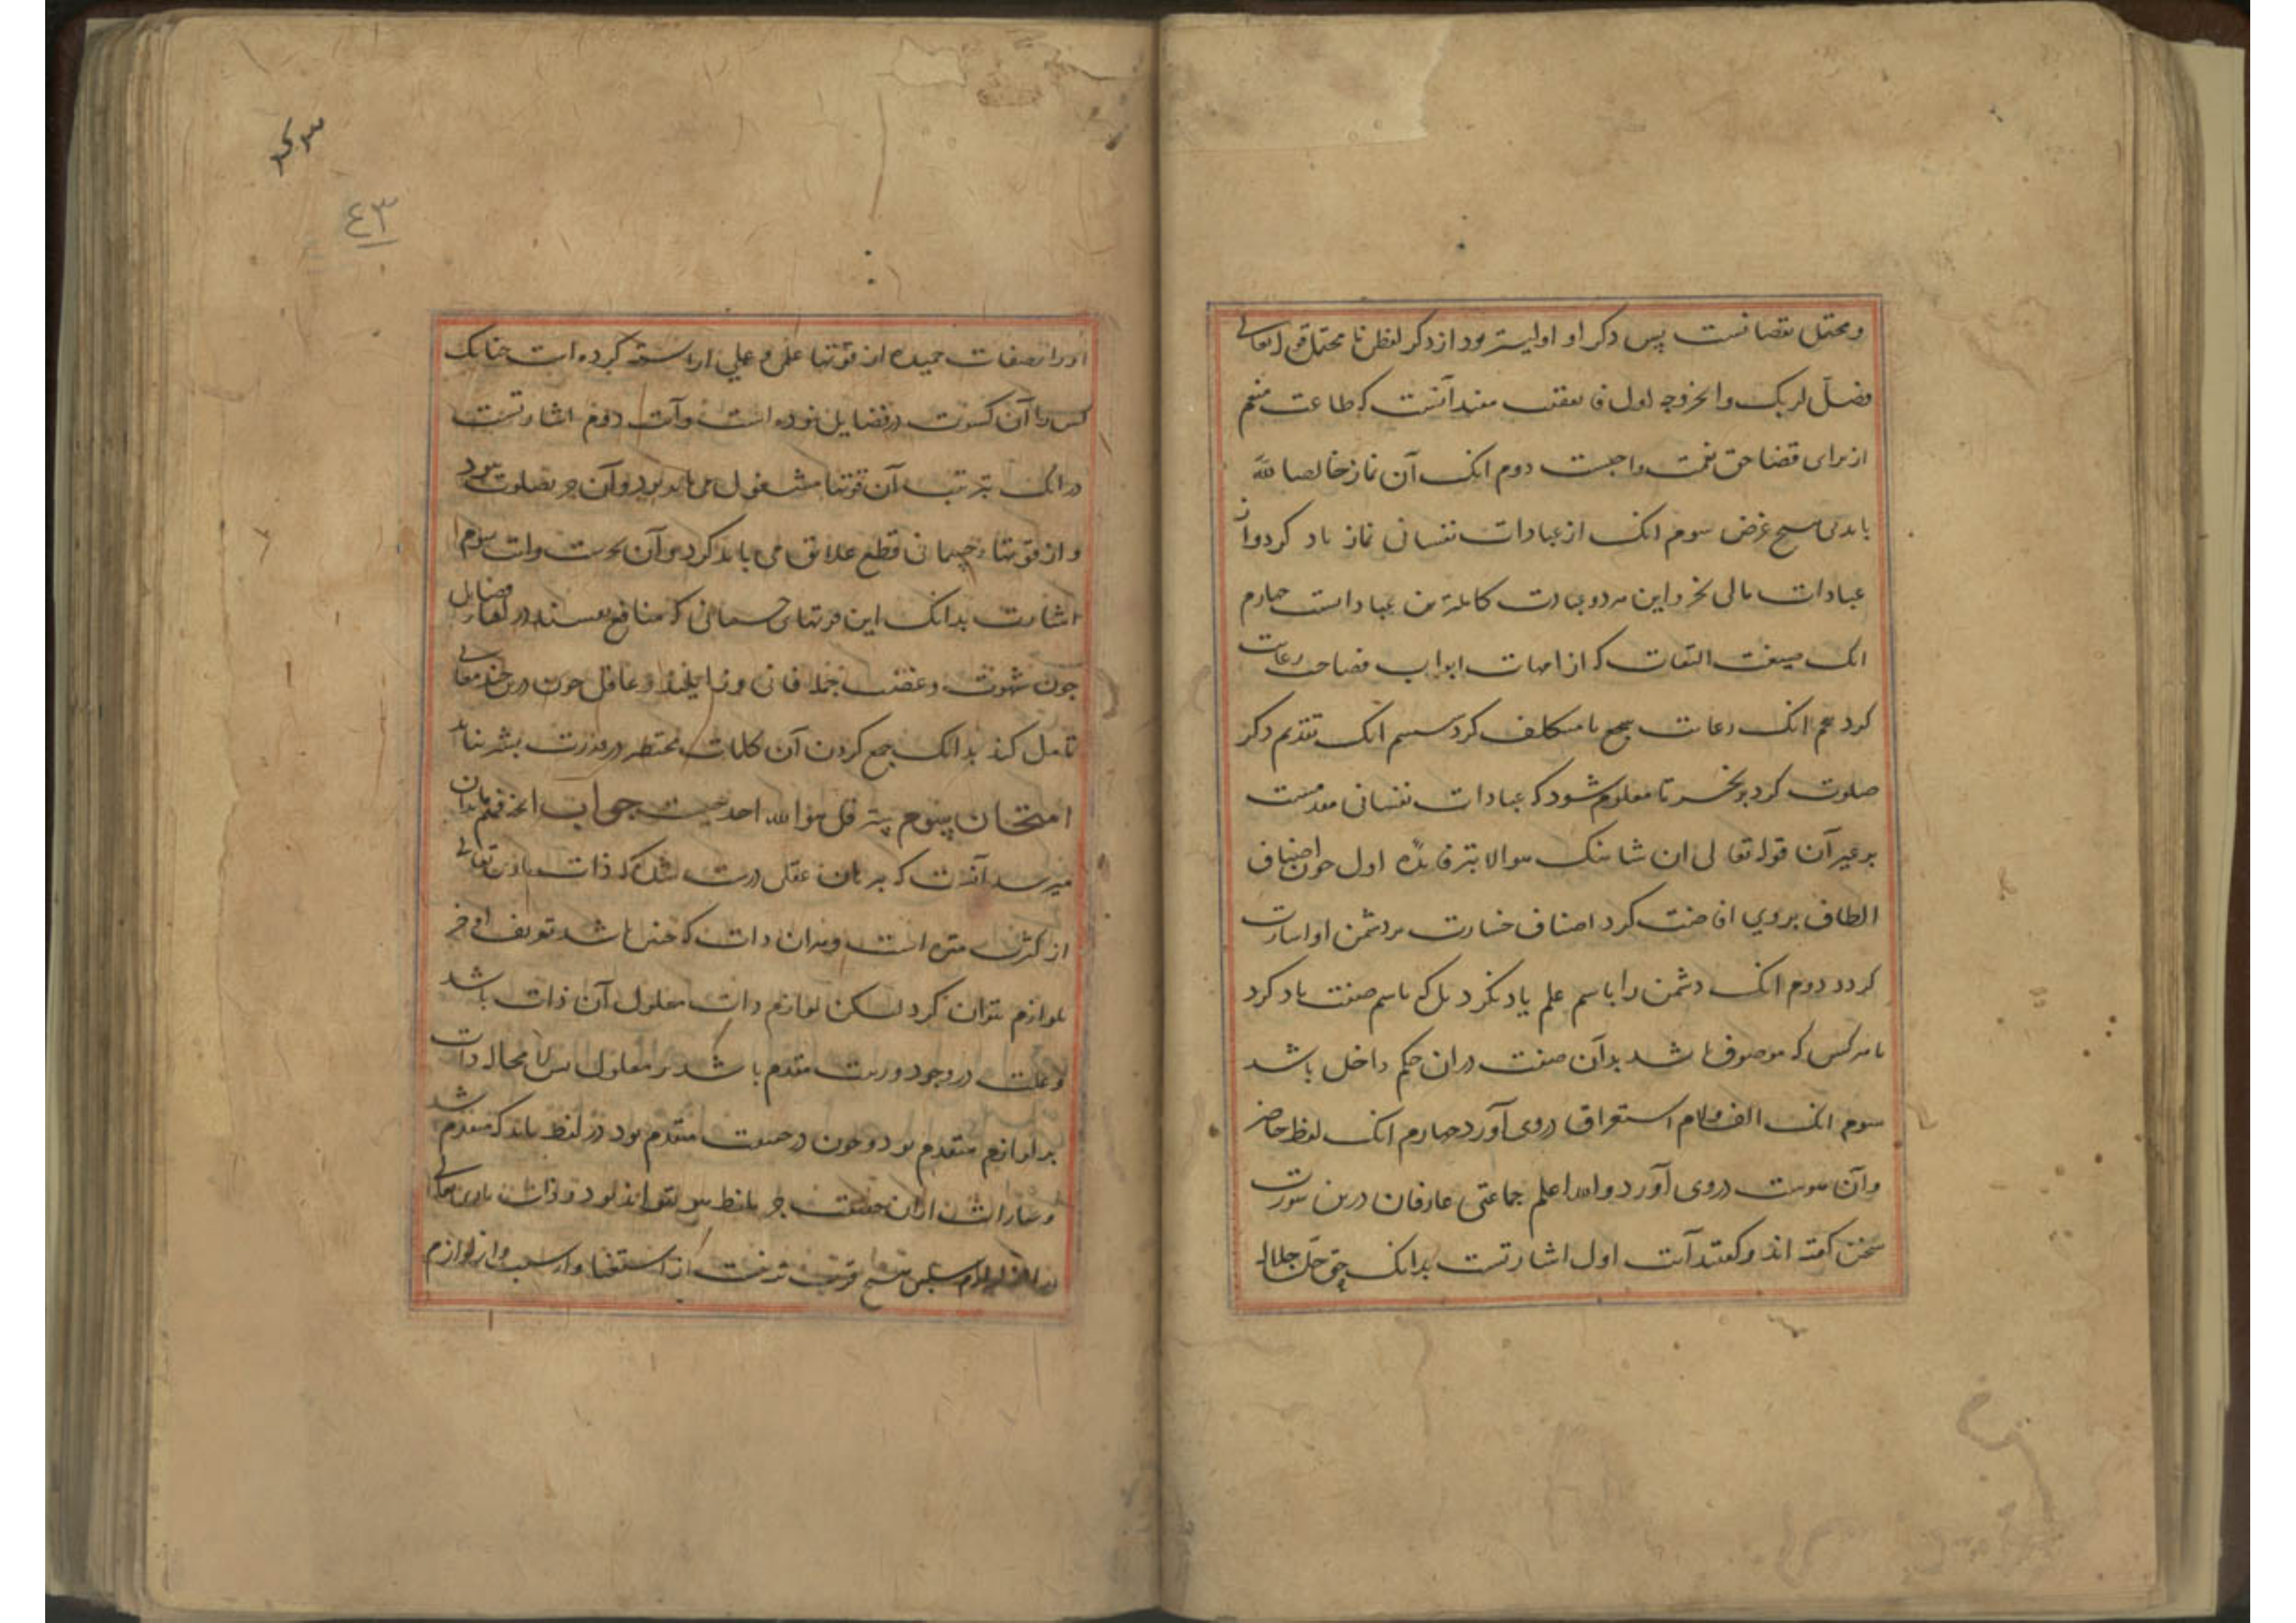 ومحتمل نقصانست پس ذکر او اولیتر بود از ذکر لفظی نا محتمل قوله تعالی
فصل لربک وانحر وجه اول فا تعقیب مفید آنست که طاعت منعم
از برای قضا حق نعمت واجبست دوم انک آن نماز خالصا لله
باید بی هیچ غرض سوم انک از عبادات نفسانی نماز یاد کرد واز
عبادات مالی نحر واین هر دو عبادت کاملترین عباداتست چهارم
انک صیغت التفات که از امهات ابواب فصاحت رعایت
کرد پنجم انک رعایت سجع نا متکلف کرد ششم انک تقدیم ذکر
صلوت کرد بر نحر تا معلوم شود که عبادات نفسانی مقدمست
بر غیر آن قوله تعالی ان شانئک هوالابتر فایده اول چون اصناف
الطاف بروی افاضت کرد اصناف خسارت بر دشمن او اشارت
کردد دوم انک دشمن را باسم علم یاد نکرد بل که باسم صفت یاد کرد
تا هر کس که موصوف باشد بدان صفت در ان حکم داخل باشد
سوم انک الف ولام استغراق دروی آورد چهارم انک لفظ حاضر
وآن هوست دروی آورد والله اعلم جماعتی عارفان درین سورت
سخن گفته اند وگفتند آیت اول اشارتست بدانک حق جل جلاله
اورا بصفات حمیده از قوتها علمی وعملی اراسته کرده است چنانک
کس را آن کسوت در فضایل نبوده است وآیت دوم اشارتست
درانک بترتیب آن قوتها مشغول می باید بود وآن جز بصلوت نبود
واز قوتهاء جسمانی قطع علایق می باید کرد وآن نحرست وایت سوم
اشارت بدانک این قوتهای جسمانی که منافع هستند در فضایل
چون شهوت وغضب جمله فانی وزایلند وعاقل چون درین معانی
تامل کند بداند که جمع کردن آن کلمات مختصر در قدرت بشر نباید
امتحان سوم پیش قل هوالله احد چیست جواب انچ فهم بدان
میرسد آنست که ببرهان عقل درست شد که ذات باری تعالی
از کثرت منزه است وبدان ذات که چنین باشد تعریف او جز
بلوازم نتوان کرد لیکن لوازم ذات معلول آن ذات باشد
وعلت در وجود ورتبت مقدم باشد بر معلول پس لا محاله ذات
بر لوازم متقدم بود وچون در حقیقت متقدم بود در لفظ باید که متقدم باشد
وعبارالت ازان حقیقت جز بلفظ هو نتواند بود وذات باری تعالی